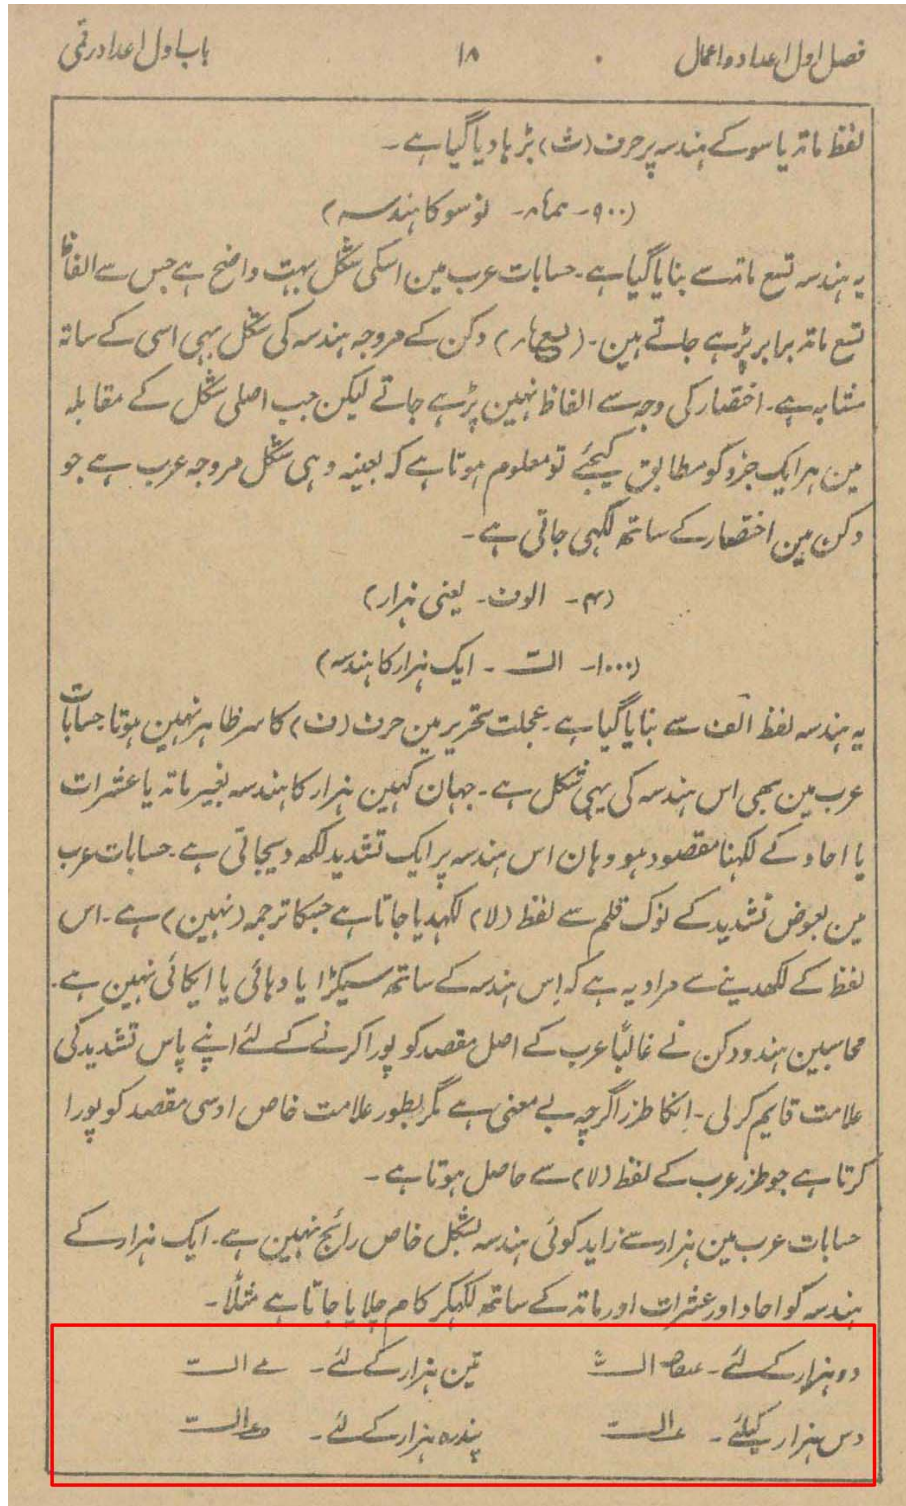 فصل اول اعداد و اعمال ۱۸ باب اول اعداد رقمی
لفظ ماتہ یا سو کے ہندسہ پر حرف (ث) بڑہا دیا گیا ہے۔
(۹۰۰۔ نو سو کا ہندسہ)
یہ ہندسہ تسع ماتہ سے بنایا گیا ہے۔ حسابات عرب مین اسکی شکل بہت واضح ہے جس سے الفاظ
تسع ماتہ برابر پڑہے جاتے ہین۔ دکن کے مروجہ ہندسہ کی شکل بہی اسی کے ساتہ
مشابہ ہے۔ اختصار کی وجہ سے الفاظ نہین پڑہے جاتے لیکن جب اصلی شکل کے مقابلہ
مین ہر ایک جزو کو مطابق کیجئے تو معلوم ہوتا ہے کہ بعینہ وہی شکل مروجہ عرب ہے جو
دکن مین اختصار کے ساتھ لکہی جاتی ہے۔
(۴۔ الوف۔ یعنی ہزار)
(۱۰۰۰۔ الــ۔ ایک ہزار کا ہندسہ)
یہ ہندسہ لفظ الف سے بنایا گیا ہے۔ عجلت تحریر مین حرف (ف) کا سر ظاہر نہین ہوتا۔ حسابات
عرب مین بھی اس ہندسہ کی یہی شکل ہے۔ جہان کہین ہزار کا ہندسہ بغیر ماتہ یا عشرات
یا احاد کے لکہنا مقصود ہو وہان اس ہندسہ پر ایک تشدید لکھ دیجاتی ہے۔ حسابات عرب
مین بعوض تشدید کے نوک قلم سے لفظ (لا) لکہدیا جاتا ہے جسکا ترجمہ (نہین) ہے۔ اس
لفظ کے لکھدینے سے مراد یہ ہے کہ اس ہندسہ کے ساتھ سیکڑا یا دہائی یا ایکائی نہین ہے۔
محاسبین ہند و دکن نے غالبًا عرب کے اصل مقصد کو پورا کرنے کے لئے اپنے پاس تشدید کی
علامت قایم کرلی۔ انکا طرز اگرچہ بے معنی ہے مگر بطور علامت خاص اوسی مقصد کو پورا
کرتا ہے جو طرز عرب کے لفظ (لا) سے حاصل ہوتا ہے۔
حسابات عرب مین ہزار سے زاید کوئی ہندسہ بشکل خاص رائج نہین ہے۔ ایک ہزار کے
ہندسہ کو احاد اور عشرات اور ماتہ کے ساتھ لکہکر کام چلایا جاتا ہے مثلًا۔
دو ہزار کے لئے۔ تین ہزار کے لئے۔
دس ہزار کیلئے۔ پندرہ ہزار کے لئے۔